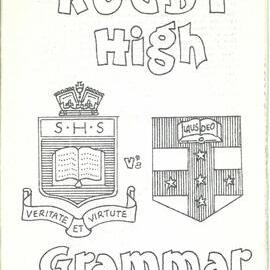 RUGBY
High
S·H·S
LAUS DEO
Vs
VERITATE ET VIRTUTE
Grammar